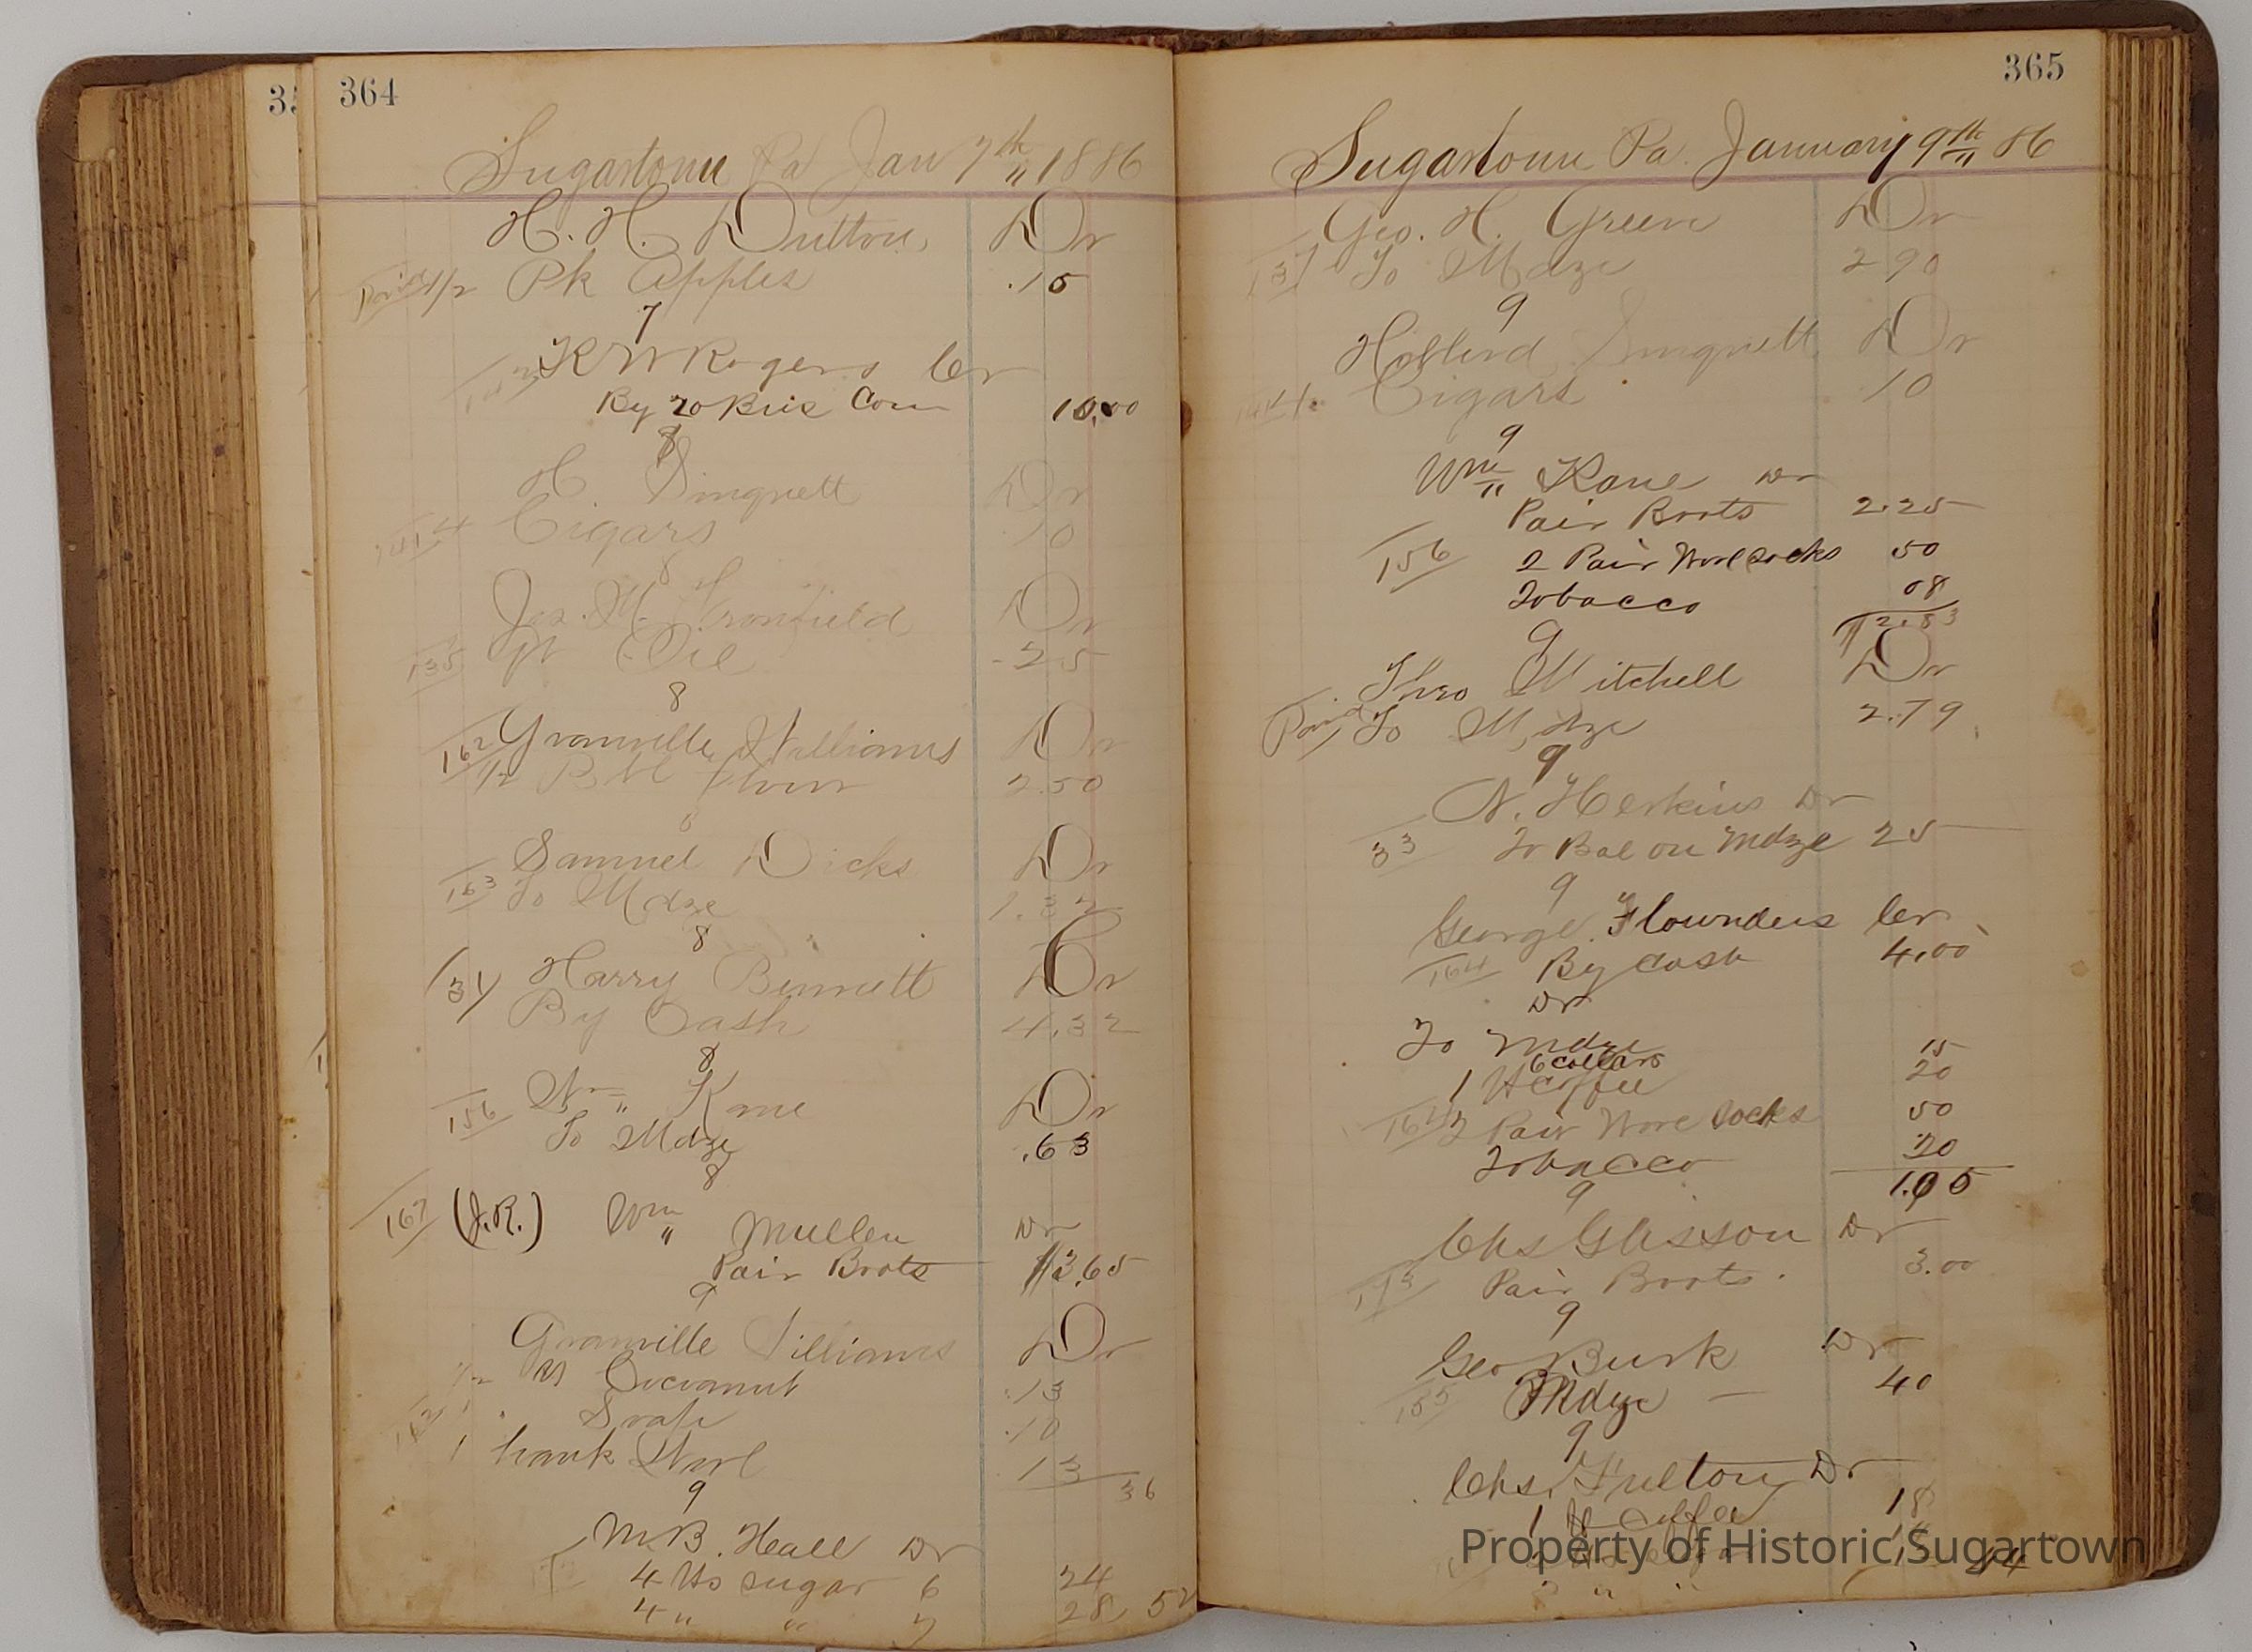 364
Sugartown Pa Jan 7th 1886
H. H. Dutton, Dr
Paid 1/2 Pk Apples .15
7
K W Rogers Cr
By 20 Bus Corn 10.00
8
H. Singuett Dr
144 Cigars 10
8
Jos. M. Dr
135 Oil .25
8
162 Granville Williams Dr
1/2 Bbl flour 2.50
8
Samuel Dicks Dr
163 To Mdze
8
31 Harry Bennett Cr
By Cash 4.32
8
156 Wm Kane Dr
To Mdze .63
8
167 (J.R.) Wm Mullen Dr
Pair Boots $3.65
9
Granville Williams Dr
1/2 Cocoanut .13
162 1 Soap .10
1 hank Worl 13
36
9
M.B. Heall Dr
4 lbs sugar 6 24
4 " " 7 28 52
365
Sugartown Pa. January 9th 86
Geo. H. Green Dr
137 To Mdze 2 90
9
Singuett Dr
144 Cigars 10
9
Wm Kane Dr
Pair Boots 2.25
156 2 Pair Worl socks 50
Tobacco 08
2.83
9
Theo Mitchell Dr
Paid To Mdze 2.79
9
N. Herkins Dr
33 To Bal on Mdze 25
9
George Flounders Cr
164 By Cash 4.00
Dr
To Mdze
6 collars 15
1 lb Coffee 20
164 2 Pair Worl socks 50
Tobacco 20
1.05
9
Chs Glisson Dr
Pair Boots. 3.00
9
Geo Burk Dr
155 Mdze — 40
9
Chs. Fulton Dr
1 lb Coffee 18
44
Property of Historic Sugartown